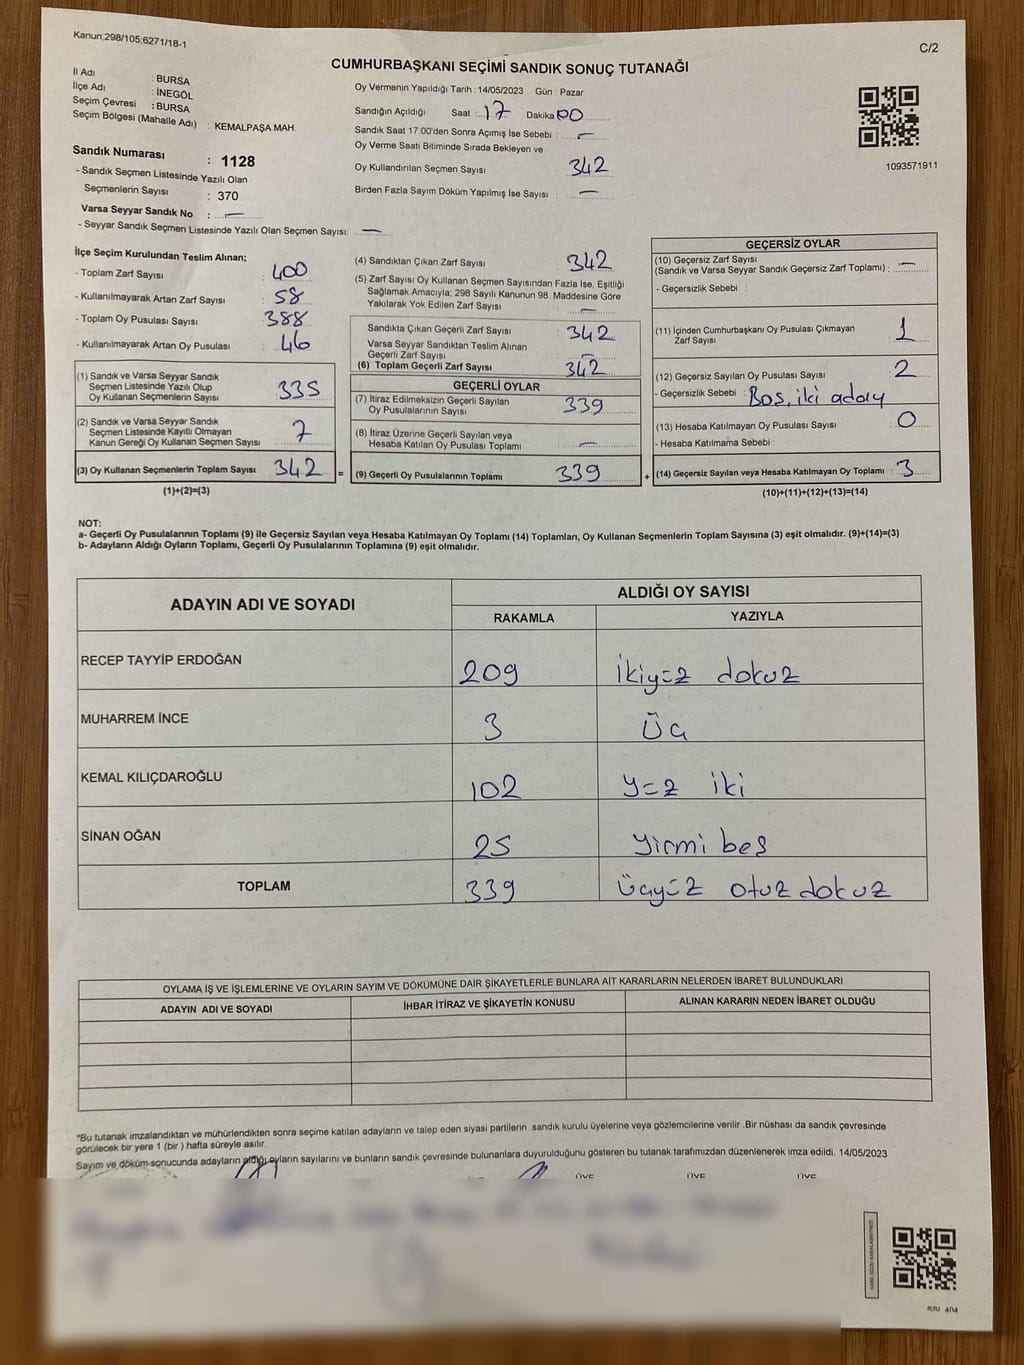 Kanun;298/105,6271/18-1
C/2
CUMHURBAŞKANI SEÇİMİ SANDIK SONUÇ TUTANAĞI
İl Adı : BURSA
İlçe Adı : İNEGÖL
Seçim Çevresi : BURSA
Seçim Bölgesi (Mahalle Adı) : KEMALPAŞA MAH.
Sandık Numarası : 1128
- Sandık Seçmen Listesinde Yazılı Olan
Seçmenlerin Sayısı : 370
Varsa Seyyar Sandık No : —
- Seyyar Sandık Seçmen Listesinde Yazılı Olan Seçmen Sayısı: —
Oy Vermenin Yapıldığı Tarih : 14/05/2023 Gün : Pazar
Sandığın Açıldığı Saat : 17 Dakika 00
Sandık Saat 17:00'den Sonra Açımış İse Sebebi : —
Oy Verme Saati Bitiminde Sırada Bekleyen ve
Oy Kullandırılan Seçmen Sayısı 342
Birden Fazla Sayım Döküm Yapılmış İse Sayısı : —
1093571911
İlçe Seçim Kurulundan Teslim Alınan;
- Toplam Zarf Sayısı : 400
- Kullanılmayarak Artan Zarf Sayısı : 58
- Toplam Oy Pusulası Sayısı : 388
- Kullanılmayarak Artan Oy Pusulası : 46
(1) Sandık ve Varsa Seyyar Sandık
Seçmen Listesinde Yazılı Olup
Oy Kullanan Seçmenlerin Sayısı : 335
(2) Sandık ve Varsa Seyyar Sandık
Seçmen Listesinde Kayıtlı Olmayan
Kanun Gereği Oy Kullanan Seçmen Sayısı : 7
(3) Oy Kullanan Seçmenlerin Toplam Sayısı 342 =
(1)+(2)=(3)
(4) Sandıktan Çıkan Zarf Sayısı : 342
(5) Zarf Sayısı Oy Kullanan Seçmen Sayısından Fazla İse, Eşitliği
Sağlamak Amacıyla; 298 Sayılı Kanunun 98. Maddesine Göre
Yakılarak Yok Edilen Zarf Sayısı : —
Sandıkta Çıkan Geçerli Zarf Sayısı : 342
Varsa Seyyar Sandıktan Teslim Alınan
Geçerli Zarf Sayısı : —
(6) Toplam Geçerli Zarf Sayısı : 342
GEÇERLİ OYLAR
(7) İtiraz Edilmeksizin Geçerli Sayılan
Oy Pusulalarının Sayısı : 339
(8) İtiraz Üzerine Geçerli Sayılan veya
Hesaba Katılan Oy Pusulası Toplamı : —
(9) Geçerli Oy Pusulalarının Toplamı 339 +
GEÇERSİZ OYLAR
(10) Geçersiz Zarf Sayısı
(Sandık ve Varsa Seyyar Sandık Geçersiz Zarf Toplamı) : —
- Geçersizlik Sebebi :
(11) İçinden Cumhurbaşkanı Oy Pusulası Çıkmayan
Zarf Sayısı : 1
(12) Geçersiz Sayılan Oy Pusulası Sayısı : 2
- Geçersizlik Sebebi : Bos, iki aday
(13) Hesaba Katılmayan Oy Pusulası Sayısı : 0
- Hesaba Katılmama Sebebi :
(14) Geçersiz Sayılan veya Hesaba Katılmayan Oy Toplamı : 3
(10)+(11)+(12)+(13)=(14)
NOT:
a- Geçerli Oy Pusulalarının Toplamı (9) ile Geçersiz Sayılan veya Hesaba Katılmayan Oy Toplamı (14) Toplamları, Oy Kullanan Seçmenlerin Toplam Sayısına (3) eşit olmalıdır. (9)+(14)=(3)
b- Adayların Aldığı Oyların Toplamı, Geçerli Oy Pusulalarının Toplamına (9) eşit olmalıdır.
ADAYIN ADI VE SOYADI ALDIĞI OY SAYISI
RAKAMLA YAZIYLA
RECEP TAYYİP ERDOĞAN 209 İkiyüz dokuz
MUHARREM İNCE 3 Üç
KEMAL KILIÇDAROĞLU 102 yüz iki
SİNAN OĞAN 25 yirmi beş
TOPLAM 339 üçyüz otuz dokuz
OYLAMA İŞ VE İŞLEMLERİNE VE OYLARIN SAYIM VE DÖKÜMÜNE DAİR ŞİKAYETLERLE BUNLARA AİT KARARLARIN NELERDEN İBARET BULUNDUKLARI
ADAYIN ADI VE SOYADI İHBAR İTİRAZ VE ŞİKAYETİN KONUSU ALINAN KARARIN NEDEN İBARET OLDUĞU
*Bu tutanak imzalandıktan ve mühürlendikten sonra seçime katılan adayların ve talep eden siyasi partilerin sandık kurulu üyelerine veya gözlemcilerine verilir .Bir nüshası da sandık çevresinde
görülecek bir yere 1 (bir ) hafta süreyle asılır.
Sayım ve döküm sonucunda adayların aldığı oyların sayılarını ve bunların sandık çevresinde bulunanlara duyurulduğunu gösteren bu tutanak tarafımızdan düzenlenerek imza edildi. 14/05/2023
ÜYE ÜYE ÜYE